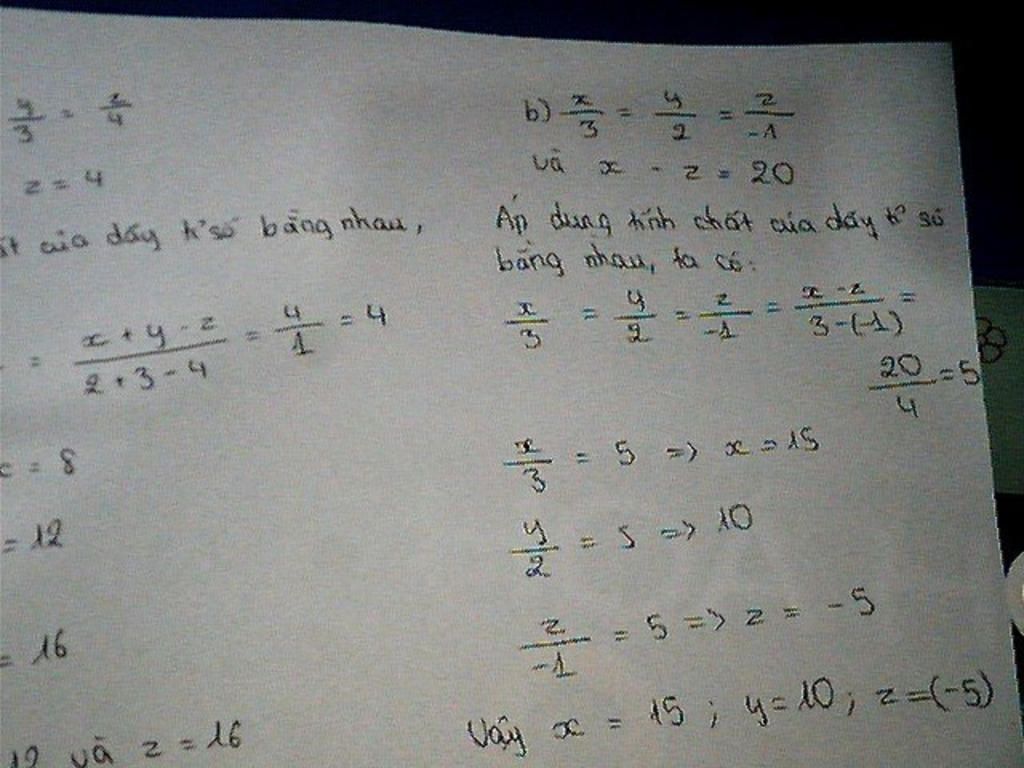 y/3 = z/4
z = 4
của dãy tỉ số bằng nhau,
= x + y - z / 2 + 3 - 4 = 4/1 = 4
= 8
= 12
= 16
12 và z = 16
b) x/3 = y/2 = z/-1
và x - z = 20
Áp dụng tính chất của dãy tỉ số
bằng nhau, ta có:
x/3 = y/2 = z/-1 = x - z / 3 - (-1) =
20/4 = 5
x/3 = 5 => x = 15
y/2 = 5 => 10
z/-1 = 5 => z = -5
Vậy x = 15 ; y = 10 ; z = (-5)